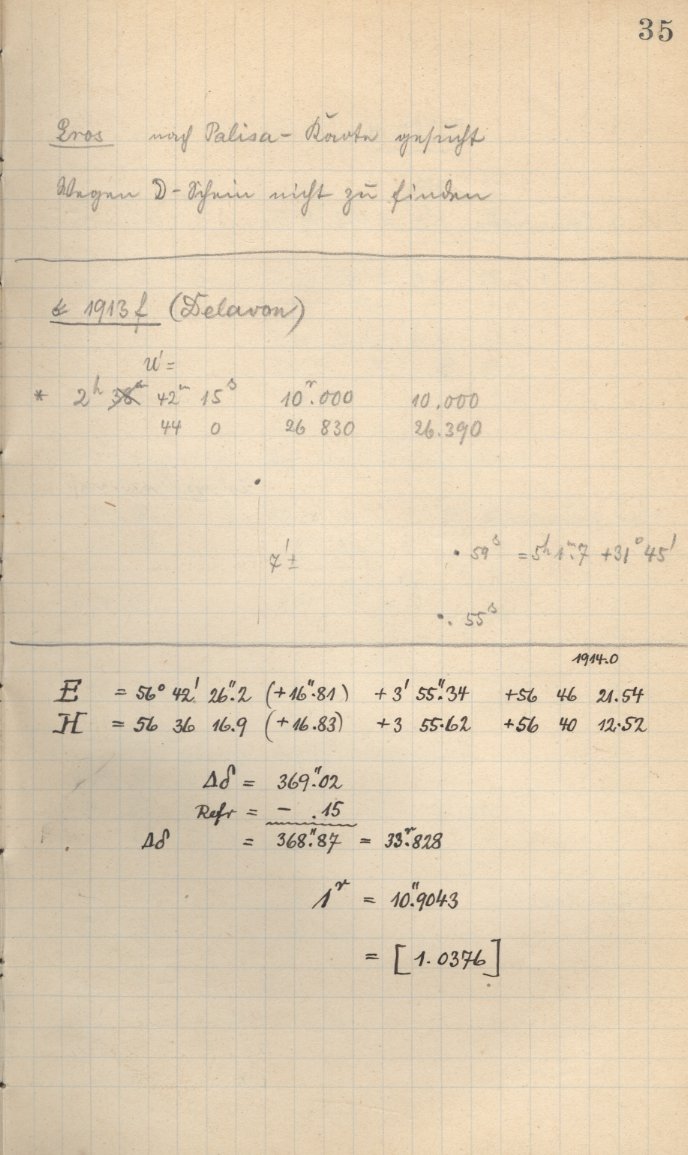 35
Eros nach Palisa-Karte gesucht
Wegen ☽-Schein nicht zu finden
☄ 1913 f (Delavan)
U' =
* 2ʰ 38ᵐ 42ᵐ 15ˢ 10ʳ.000 10.000
44 0 26 830 26.390
7'± . 59ˢ = 5ʰ 1ᵐ.7 +31° 45'
. 55ˢ
1914.0
E = 56° 42' 26".2 (+16".81) +3' 55".34 +56 46 21.54
H = 56 36 16.9 (+16.83) +3 55.62 +56 40 12.52
Δδ = 369".02
Refr = - .15
Δδ = 368".87 = 33ʳ.828
1ʳ = 10".9043
= [1.0376]